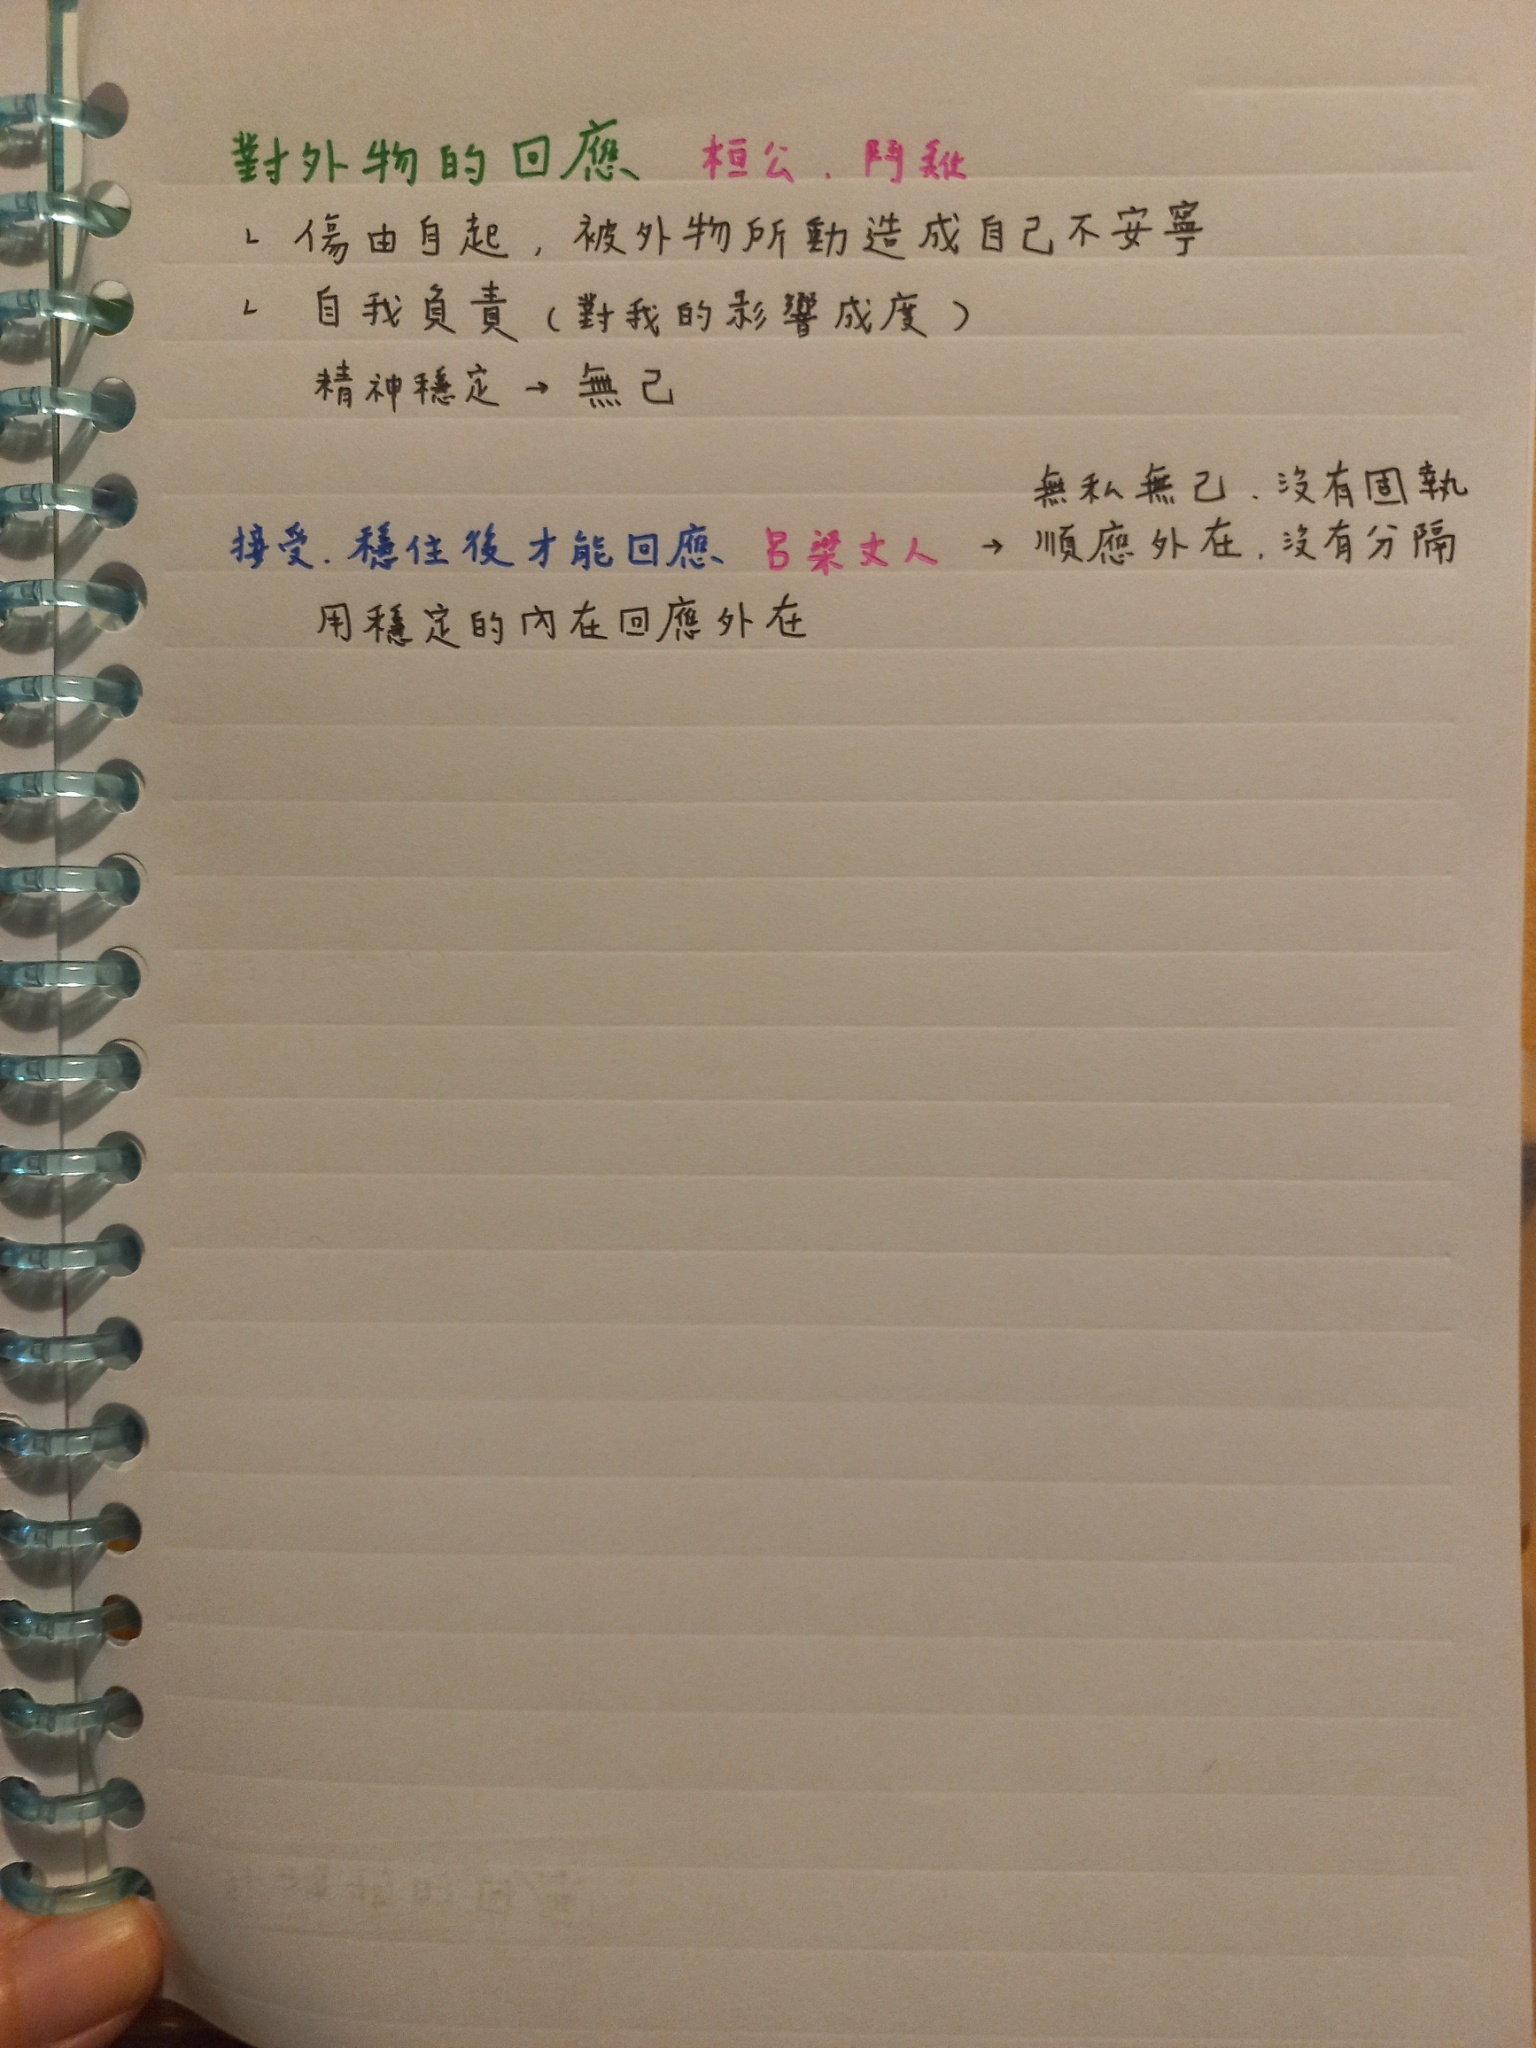 對外物的回應 桓公．鬥雞
傷由自起，被外物所動造成自己不安寧
自我負責（對我的影響成度）
精神穩定→無己
無私無己．沒有固執
接受．穩住後才能回應 呂梁丈人 → 順應外在．沒有分隔
用穩定的內在回應外在